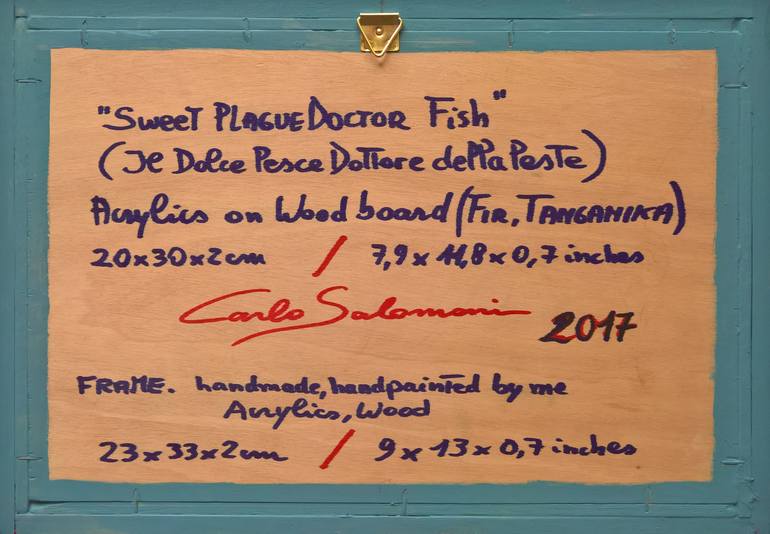 "Sweet PLAGUE DOCTOR Fish"
(Il Dolce Pesce Dottore della Peste)
Acrylics on Wood board (FIR, TANGANIKA)
20x30x2cm / 7,9 x 11,8 x 0,7 inches
Carlo Salomoni 2017
FRAME. handmade, handpainted by me
Acrylics, Wood
23x33x2cm / 9 x 13 x 0,7 inches